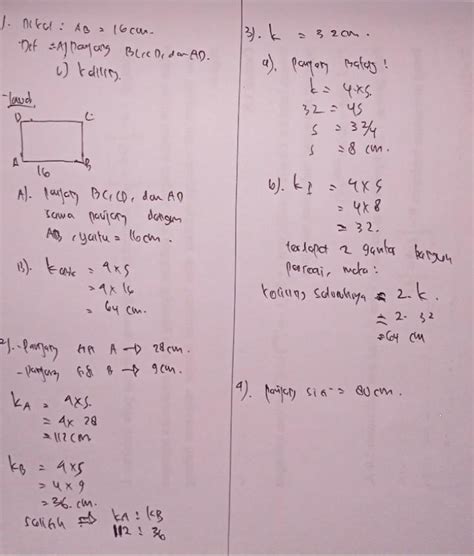 1. Diket : AB = 16 cm.
Dit = A) panjang BC, CD, dan AD.
b) keliling.
Jawab.
D C
A B
16
A). panjang BC, CD, dan AD
sama panjang dengan
AB, yaitu = 16 cm.
B). K = 4 x s
= 4 x 16
= 64 cm.
2). - panjang A → 28 cm.
- panjang B → 9 cm.
KA = 4 x s.
= 4 x 28
= 112 cm
KB = 4 x s
= 4 x 9
= 36. cm.
⇒ KA : KB
112 : 36
3). K = 32 cm.
a). panjang
K = 4 x s.
32 = 4s
s = 32/4
s = 8 cm.
b). K = 4 x s
= 4 x 8
= 32.
terdapat 2 gambar bangun
persegi, maka :
keliling seluruhnya = 2. K.
= 2. 32
= 64 cm
4). panjang sisi = 80 cm.